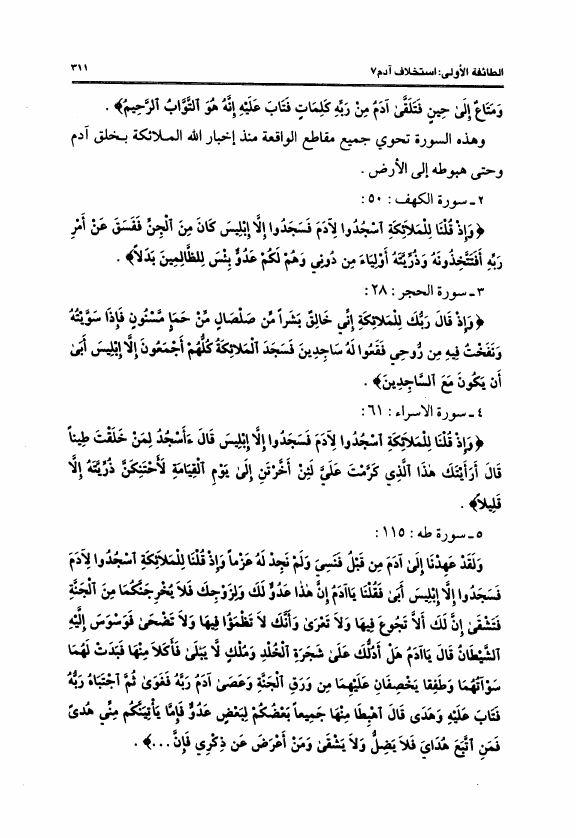 الطائفة الأولى: استخلاف آدم٧ ٣١١
وَمَتَاعٌ إِلَىٰ حِينٍ فَتَلَقَّىٰ آدَمُ مِنْ رَبِّهِ كَلِمَاتٍ فَتَابَ عَلَيْهِ إِنَّهُ هُوَ ٱلتَّوَّابُ ٱلرَّحِيمُ﴾ .
وهذه السورة تحوي جميع مقاطع الواقعة منذ إخبار الله الملائكة بخلق آدم
وحتى هبوطه إلى الأرض .
٢ ـ سورة الكهف : ٥٠ :
﴿وَإِذْ قُلْنَا لِلْمَلَائِكَةِ ٱسْجُدُوا لِآدَمَ فَسَجَدُوا إِلَّا إِبْلِيسَ كَانَ مِنَ ٱلْجِنِّ فَفَسَقَ عَنْ أَمْرِ
رَبِّهِ أَفَتَتَّخِذُونَهُ وَذُرِّيَّتَهُ أَوْلِيَاءَ مِن دُونِي وَهُمْ لَكُمْ عَدُوٌّ بِئْسَ لِلظَّالِمِينَ بَدَلاً﴾ .
٣ ـ سورة الحجر : ٢٨ :
﴿وَإِذْ قَالَ رَبُّكَ لِلْمَلَائِكَةِ إِنِّي خَالِقٌ بَشَراً مِّن صَلْصَالٍ مِّنْ حَمَإٍ مَّسْنُونٍ فَإِذَا سَوَّيْتُهُ
وَنَفَخْتُ فِيهِ مِن رُّوحِي فَقَعُوا لَهُ سَاجِدِينَ فَسَجَدَ ٱلْمَلَائِكَةُ كُلُّهُمْ أَجْمَعُونَ إِلَّا إِبْلِيسَ أَبَىٰ
أَن يَكُونَ مَعَ ٱلسَّاجِدِينَ﴾ .
٤ ـ سورة الاسراء : ٦١ :
﴿وَإِذْ قُلْنَا لِلْمَلَائِكَةِ ٱسْجُدُوا لِآدَمَ فَسَجَدُوا إِلَّا إِبْلِيسَ قَالَ ءَأَسْجُدُ لِمَنْ خَلَقْتَ طِيناً
قَالَ أَرَأَيْتَكَ هٰذَا ٱلَّذِي كَرَّمْتَ عَلَيَّ لَئِنْ أَخَّرْتَنِ إِلَىٰ يَوْمِ ٱلْقِيَامَةِ لَأَحْتَنِكَنَّ ذُرِّيَّتَهُ إِلَّا
قَلِيلاً﴾ .
٥ ـ سورة طه : ١١٥ :
وَلَقَدْ عَهِدْنَا إِلَىٰ آدَمَ مِن قَبْلُ فَنَسِيَ وَلَمْ نَجِدْ لَهُ عَزْماً وَإِذْ قُلْنَا لِلْمَلَائِكَةِ ٱسْجُدُوا لِآدَمَ
فَسَجَدُوا إِلَّا إِبْلِيسَ أَبَىٰ فَقُلْنَا يَاآدَمُ إِنَّ هٰذَا عَدُوٌّ لَكَ وَلِزَوْجِكَ فَلَا يُخْرِجَنَّكُمَا مِنَ ٱلْجَنَّةِ
فَتَشْقَىٰ إِنَّ لَكَ أَلَّا تَجُوعَ فِيهَا وَلَا تَعْرَىٰ وَأَنَّكَ لَا تَظْمَؤُا فِيهَا وَلَا تَضْحَىٰ فَوَسْوَسَ إِلَيْهِ
ٱلشَّيْطَانُ قَالَ يَاآدَمُ هَلْ أَدُلُّكَ عَلَىٰ شَجَرَةِ ٱلْخُلْدِ وَمُلْكٍ لَّا يَبْلَىٰ فَأَكَلَا مِنْهَا فَبَدَتْ لَهُمَا
سَوْآتُهُمَا وَطَفِقَا يَخْصِفَانِ عَلَيْهِمَا مِن وَرَقِ ٱلْجَنَّةِ وَعَصَىٰ آدَمُ رَبَّهُ فَغَوَىٰ ثُمَّ ٱجْتَبَاهُ رَبُّهُ
فَتَابَ عَلَيْهِ وَهَدَى قَالَ ٱهْبِطَا مِنْهَا جَمِيعاً بَعْضُكُمْ لِبَعْضٍ عَدُوٌّ فَإِمَّا يَأْتِيَنَّكُم مِنِّي هُدىً
فَمَنِ ٱتَّبَعَ هُدَايَ فَلَا يَضِلُّ وَلَا يَشْقَىٰ وَمَنْ أَعْرَضَ عَن ذِكْرِي فَإِنَّ...﴾ .